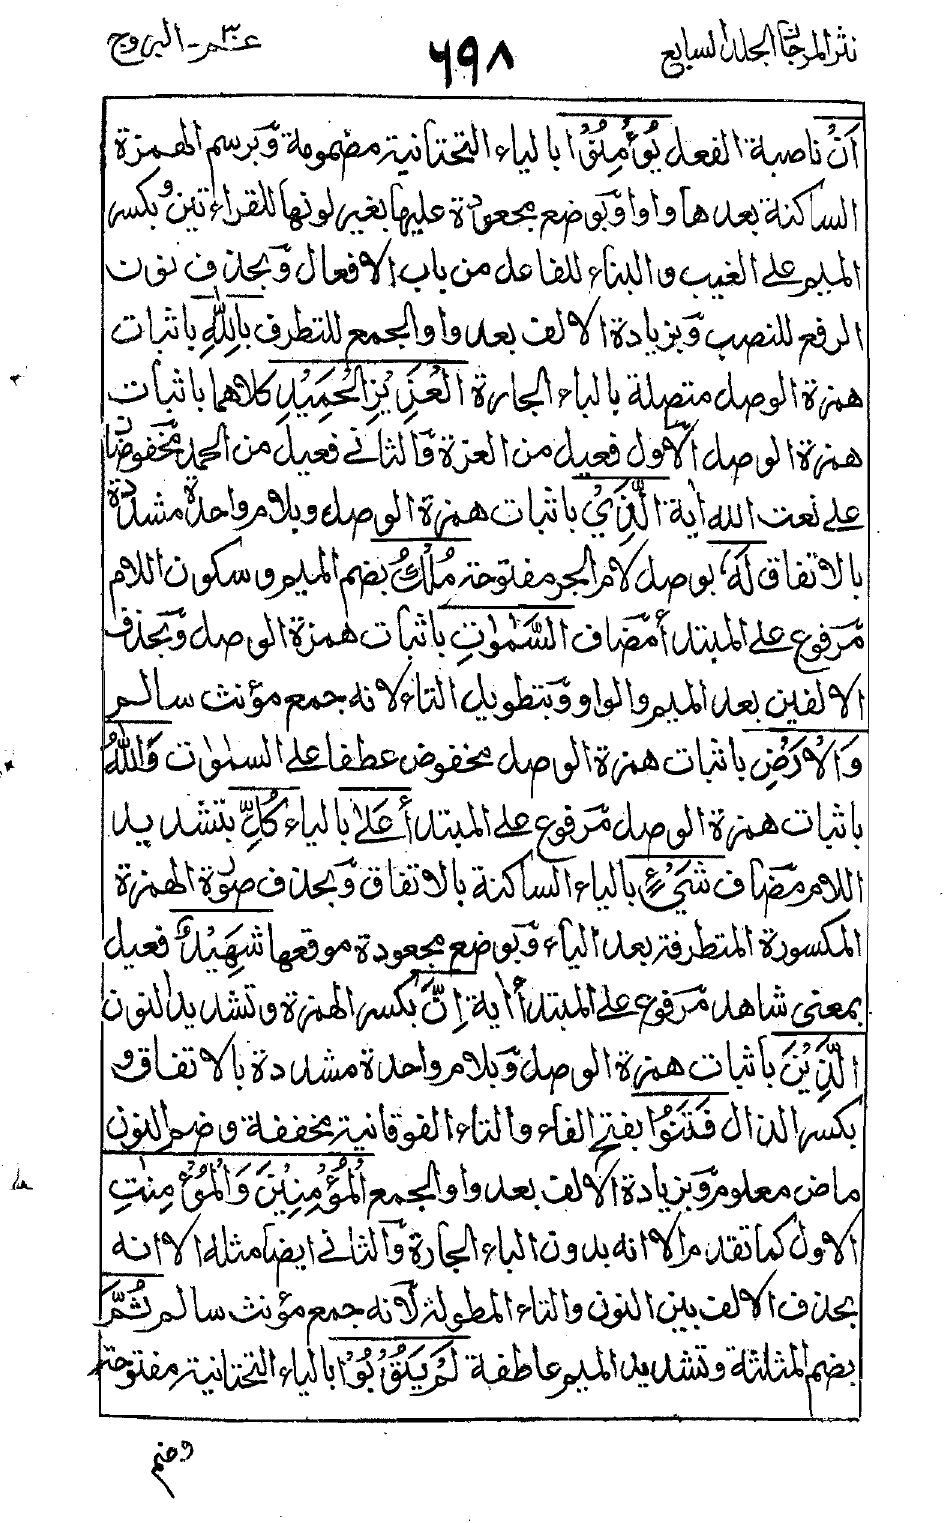 نثر المرجان الجلد السابع
٦٩٨
عم ٣٠ - البروج
اَنْ ناصبة الفعل يُؤْمِنُوْا بالياء التحتانية مضمومة وَبرسم الهمزة
الساكنة بعدها واوا وَبوضع مجعودة عليها بغير لونها للقراءتين وبكسر
الميم على الغيب والبناء للفاعل من باب الافعال وَبحذف نون
الرفع للنصب وَبزيادة الالف بعد واو الجمع للتطرف بِاللّٰهِ باثبات
همزة الوصل متصلة بالباء الجارة الْعَزِيْزِ الْحَمِيْدِ كلاهما باثبات
همزة الوصل الأول فعيل من العزة وَالثاني فعيل من الحمد مخفوضان
على نعت الله اٰية الَّذِيْ باثبات همزة الوصل وبلام واحدة مشددة
بالاتفاق لَهٗ بوصل لام الجر مفتوحة مُلْكُ بضم الميم وسكون اللام
مرفوع على المبتدأ مضاف السَّمٰوٰتِ باثبات همزة الوصل وَبحذف
الالفين بعد الميم والواو وَبتطويل التاء لانه جمع مؤنث سالم
وَالْاَرْضِ باثبات همزة الوصل مخفوض عطفا على السمٰوٰت وَاللّٰهُ
باثبات همزة الوصل مرفوع على المبتدأ عَلٰى بالياء كُلِّ بتشديد
اللام مضاف شَيْءٍ بالياء الساكنة بالاتفاق وَبحذف صورة الهمزة
المكسورة المتطرفة بعد الياء وَبوضع مجعودة موقعها شَهِيْدٌ فعيل
بمعنى شاهد مرفوع على المبتدأ اٰية اِنَّ بكسر الهمزة وتشديد النون
الَّذِيْنَ باثبات همزة الوصل وَبلام واحدة مشددة بالاتفاق و
بكسر الذال فَتَنُوْا بفتح الفاء والتاء الفوقانية مخففة وضم النون
ماض معلوم وَبزيادة الالف بعد واو الجمع الْمُؤْمِنِيْنَ وَالْمُؤْمِنٰتِ
الاول كما تقدم الا انه بدون الباء الجارة وَالثاني ايضا مثله الا انه
بحذف الالف بين النون والتاء المطولة لانه جمع مؤنث سالم ثُمَّ
بضم المثلثة وتشديد الميم عاطفة لَمْ يَتُوْبُوْا بالياء التحتانية مفتوحة
وضم